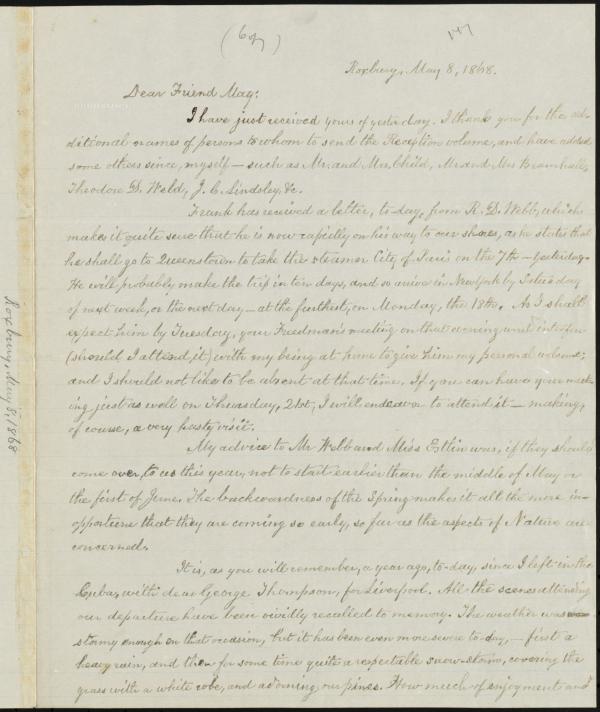 (Copy)
147
Roxbury, May 8, 1868.
Dear Friend May:
I have just received yours of yesterday. I thank you for the ad-
ditional names of persons to whom to send the Reception volume, and have added
some others since, myself — such as Mr. and Mrs. Child, Mr. and Mrs. Bramhall,
Theodore D. Weld, J. C. Lindsley, &c.
Frank has received a letter, to-day, from R. D. Webb, which
makes it quite sure that he is now rapidly on his way to our shores, as he states that
he shall go to Queenstown to take the steamer City of Paris on the 7th — yesterday.
He will probably make the trip in ten days, and so arrive in New York by Saturday
of next week, or the next day — at the furthest, on Monday, the 18th. As I shall
expect him by Tuesday, your Freedman's meeting on that evening will interfere
(should I attend it) with my being at home to give him my personal welcome;
and I should not like to be absent at that time. If you can have your meet-
ing just as well on Thursday, 21st, I will endeavor to attend it — making,
of course, a very hasty visit.
My advice to Mr. Webb and Miss Estlin was, if they should
come over to us this year, not to start earlier than the middle of May or
the first of June. The backwardness of the Spring makes it all the more in-
opportune that they are coming so early, so far as the aspects of Nature are
concerned.
It is, as you will remember, a year ago, to-day, since I left in the
Cuba, with dear George Thompson, for Liverpool. All the scenes attending
our departure have been vividly recalled to memory. The weather was
stormy enough on that occasion, but it has been even more severe to-day, — first a
heavy rain, and then for some time quite a respectable snow-storm, covering the
grass with a white robe, and adorning our pines. How much of enjoyment and
Roxbury, May 8, 1868